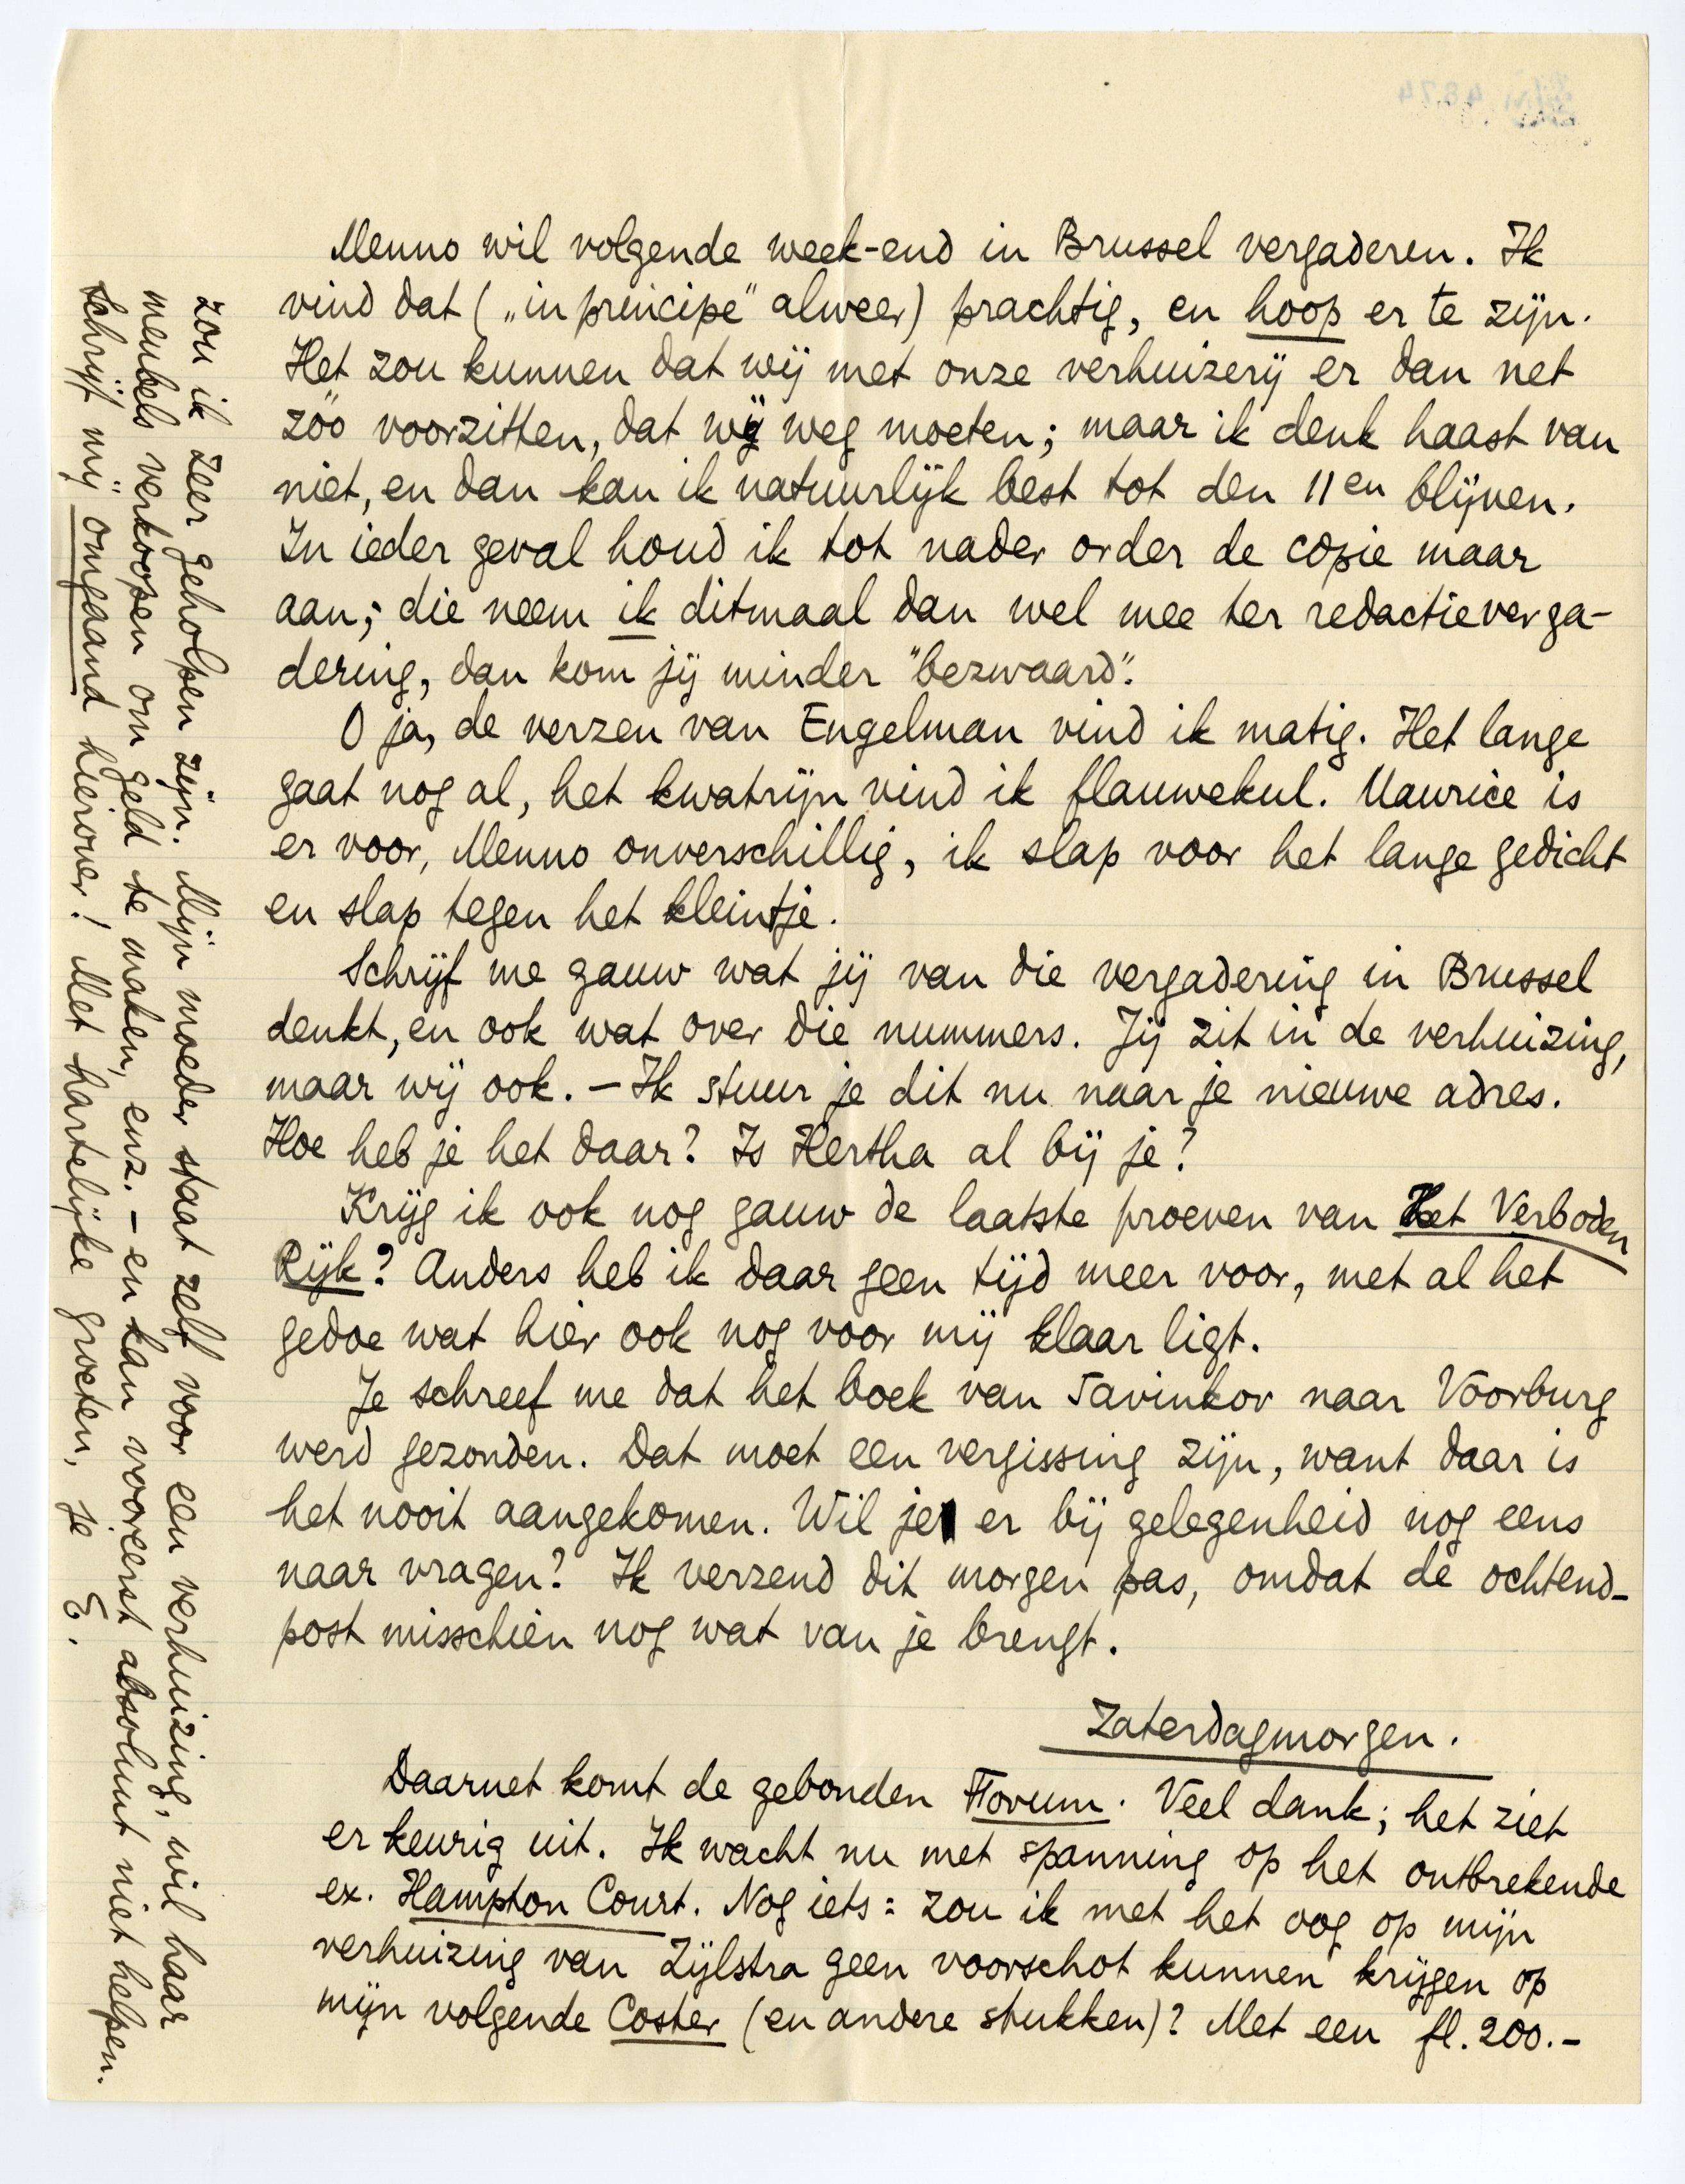 Menno wil volgende week-end in Brussel vergaderen. Ik
vind dat („in principe" alweer) prachtig, en hoop er te zijn.
Het zou kunnen dat wij met onze verhuizerij er dan net
zóó voorzitten, dat wij weg moeten; maar ik denk haast van
niet, en dan kan ik natuurlijk best tot den 11en blijven.
In ieder geval houd ik tot nader order de copie maar
aan; die neem ik ditmaal dan wel mee ter redactieverga-
dering, dan kom jij minder "bezwaard".
O ja, de verzen van Engelman vind ik matig. Het lange
gaat nog al, het kwatrijn vind ik flauwekul. Maurice is
er voor, Menno onverschillig, ik slap voor het lange gedicht
en slap tegen het kleintje.
Schrijf me gauw wat jij van die vergadering in Brussel
denkt, en ook wat over die nummers. Jij zit in de verhuizing,
maar wij ook. – Ik stuur je dit nu naar je nieuwe adres.
Hoe heb je het daar? Is Hertha al bij je?
Krijg ik ook nog gauw de laatste proeven van Het Verboden
Rijk? Anders heb ik daar geen tijd meer voor, met al het
gedoe wat hier ook nog voor mij klaar ligt.
Je schreef me dat het boek van Savinkov naar Voorburg
werd gezonden. Dat moet een vergissing zijn, want daar is
het nooit aangekomen. Wil je er bij gelegenheid nog eens
naar vragen? Ik verzend dit morgen pas, omdat de ochtend-
post misschien nog wat van je brengt.
Zaterdagmorgen.
Daarnet komt de gebonden Forum. Veel dank; het ziet
er keurig uit. Ik wacht nu met spanning op het ontbrekende
ex. Hampton Court. Nog iets: zou ik met het oog op mijn
verhuizing van Zijlstra geen voorschot kunnen krijgen op
mijn volgende Coster (en andere stukken)? Met een fl. 200.-
zou ik zeer geholpen zijn. Mijn moeder staat zelf voor een verhuizing, wil haar
meubels verkoopen om geld te maken, enz. – en kan voorerst absoluut niet helpen.
Schrijf mij omgaand hierover! Met hartelijke groeten, je E.